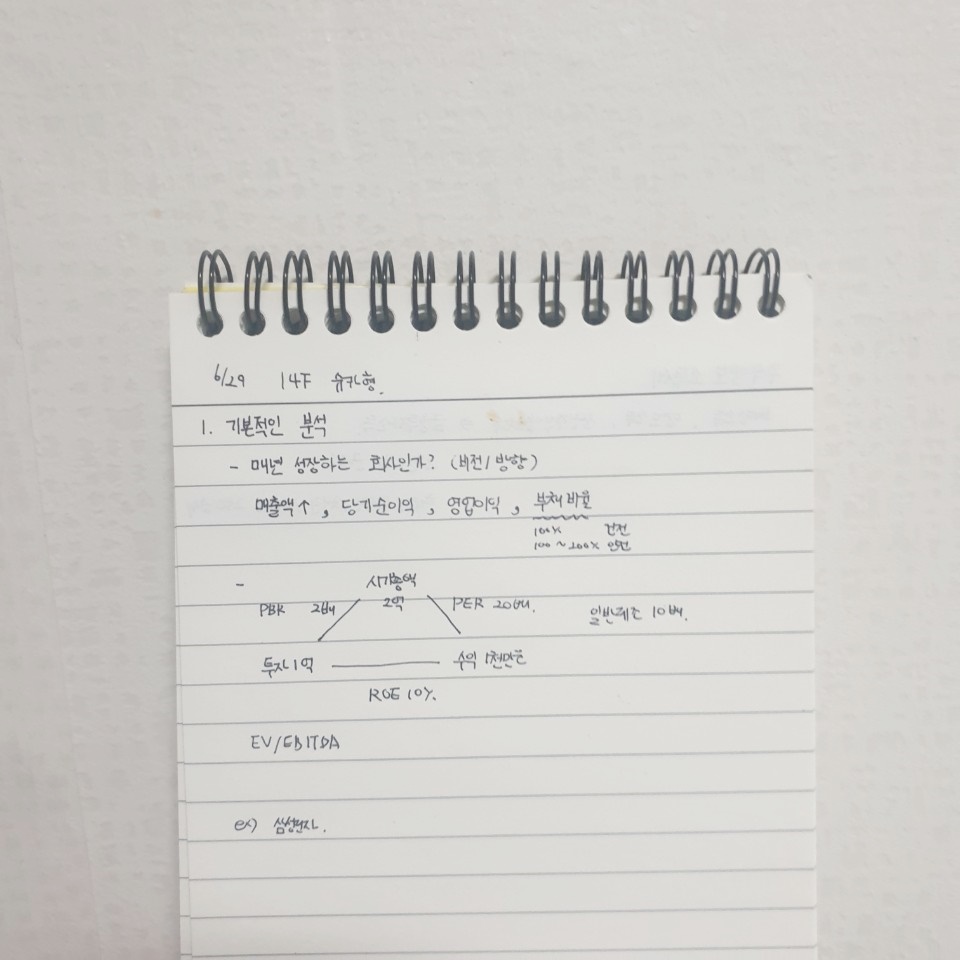 6/29 14F 슈카형.
1. 기본적인 분석
- 매년 성장하는 회사인가? (비전/방향)
매출액↑, 당기순이익, 영업이익, 부채비율
100% 안전
100~200% 안전
- 시가총액
PBR 2배 2억 PER 20배. 일반제조 10배.
투자 1억 수익 1천만원
ROE 10%.
EV/EBITDA
ex) 삼성전자.